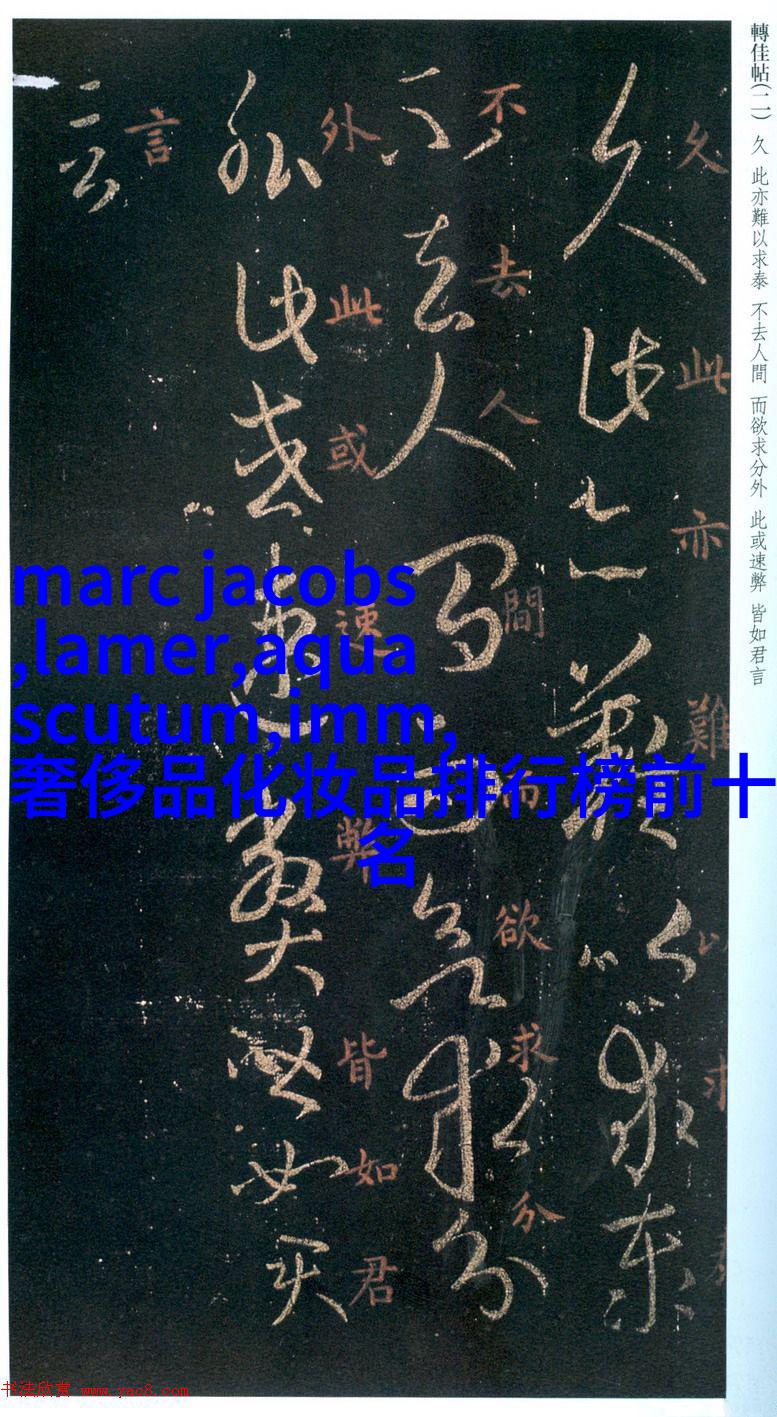 轉佳帖(二) 久 此亦難以求泰 不去人間 而欲求分外 此或速弊 皆如君言
久此亦難以求泰
久此亦難以求泰
不去人間而欲求分
不去人間而欲求分
外此或速弊皆如君
外此或速弊皆如君
言
言
marc jacobs
,lamer,aqua
scutum,imm,
奢侈品化妆品排行榜前十
名
书法欣赏 www.yac8.com